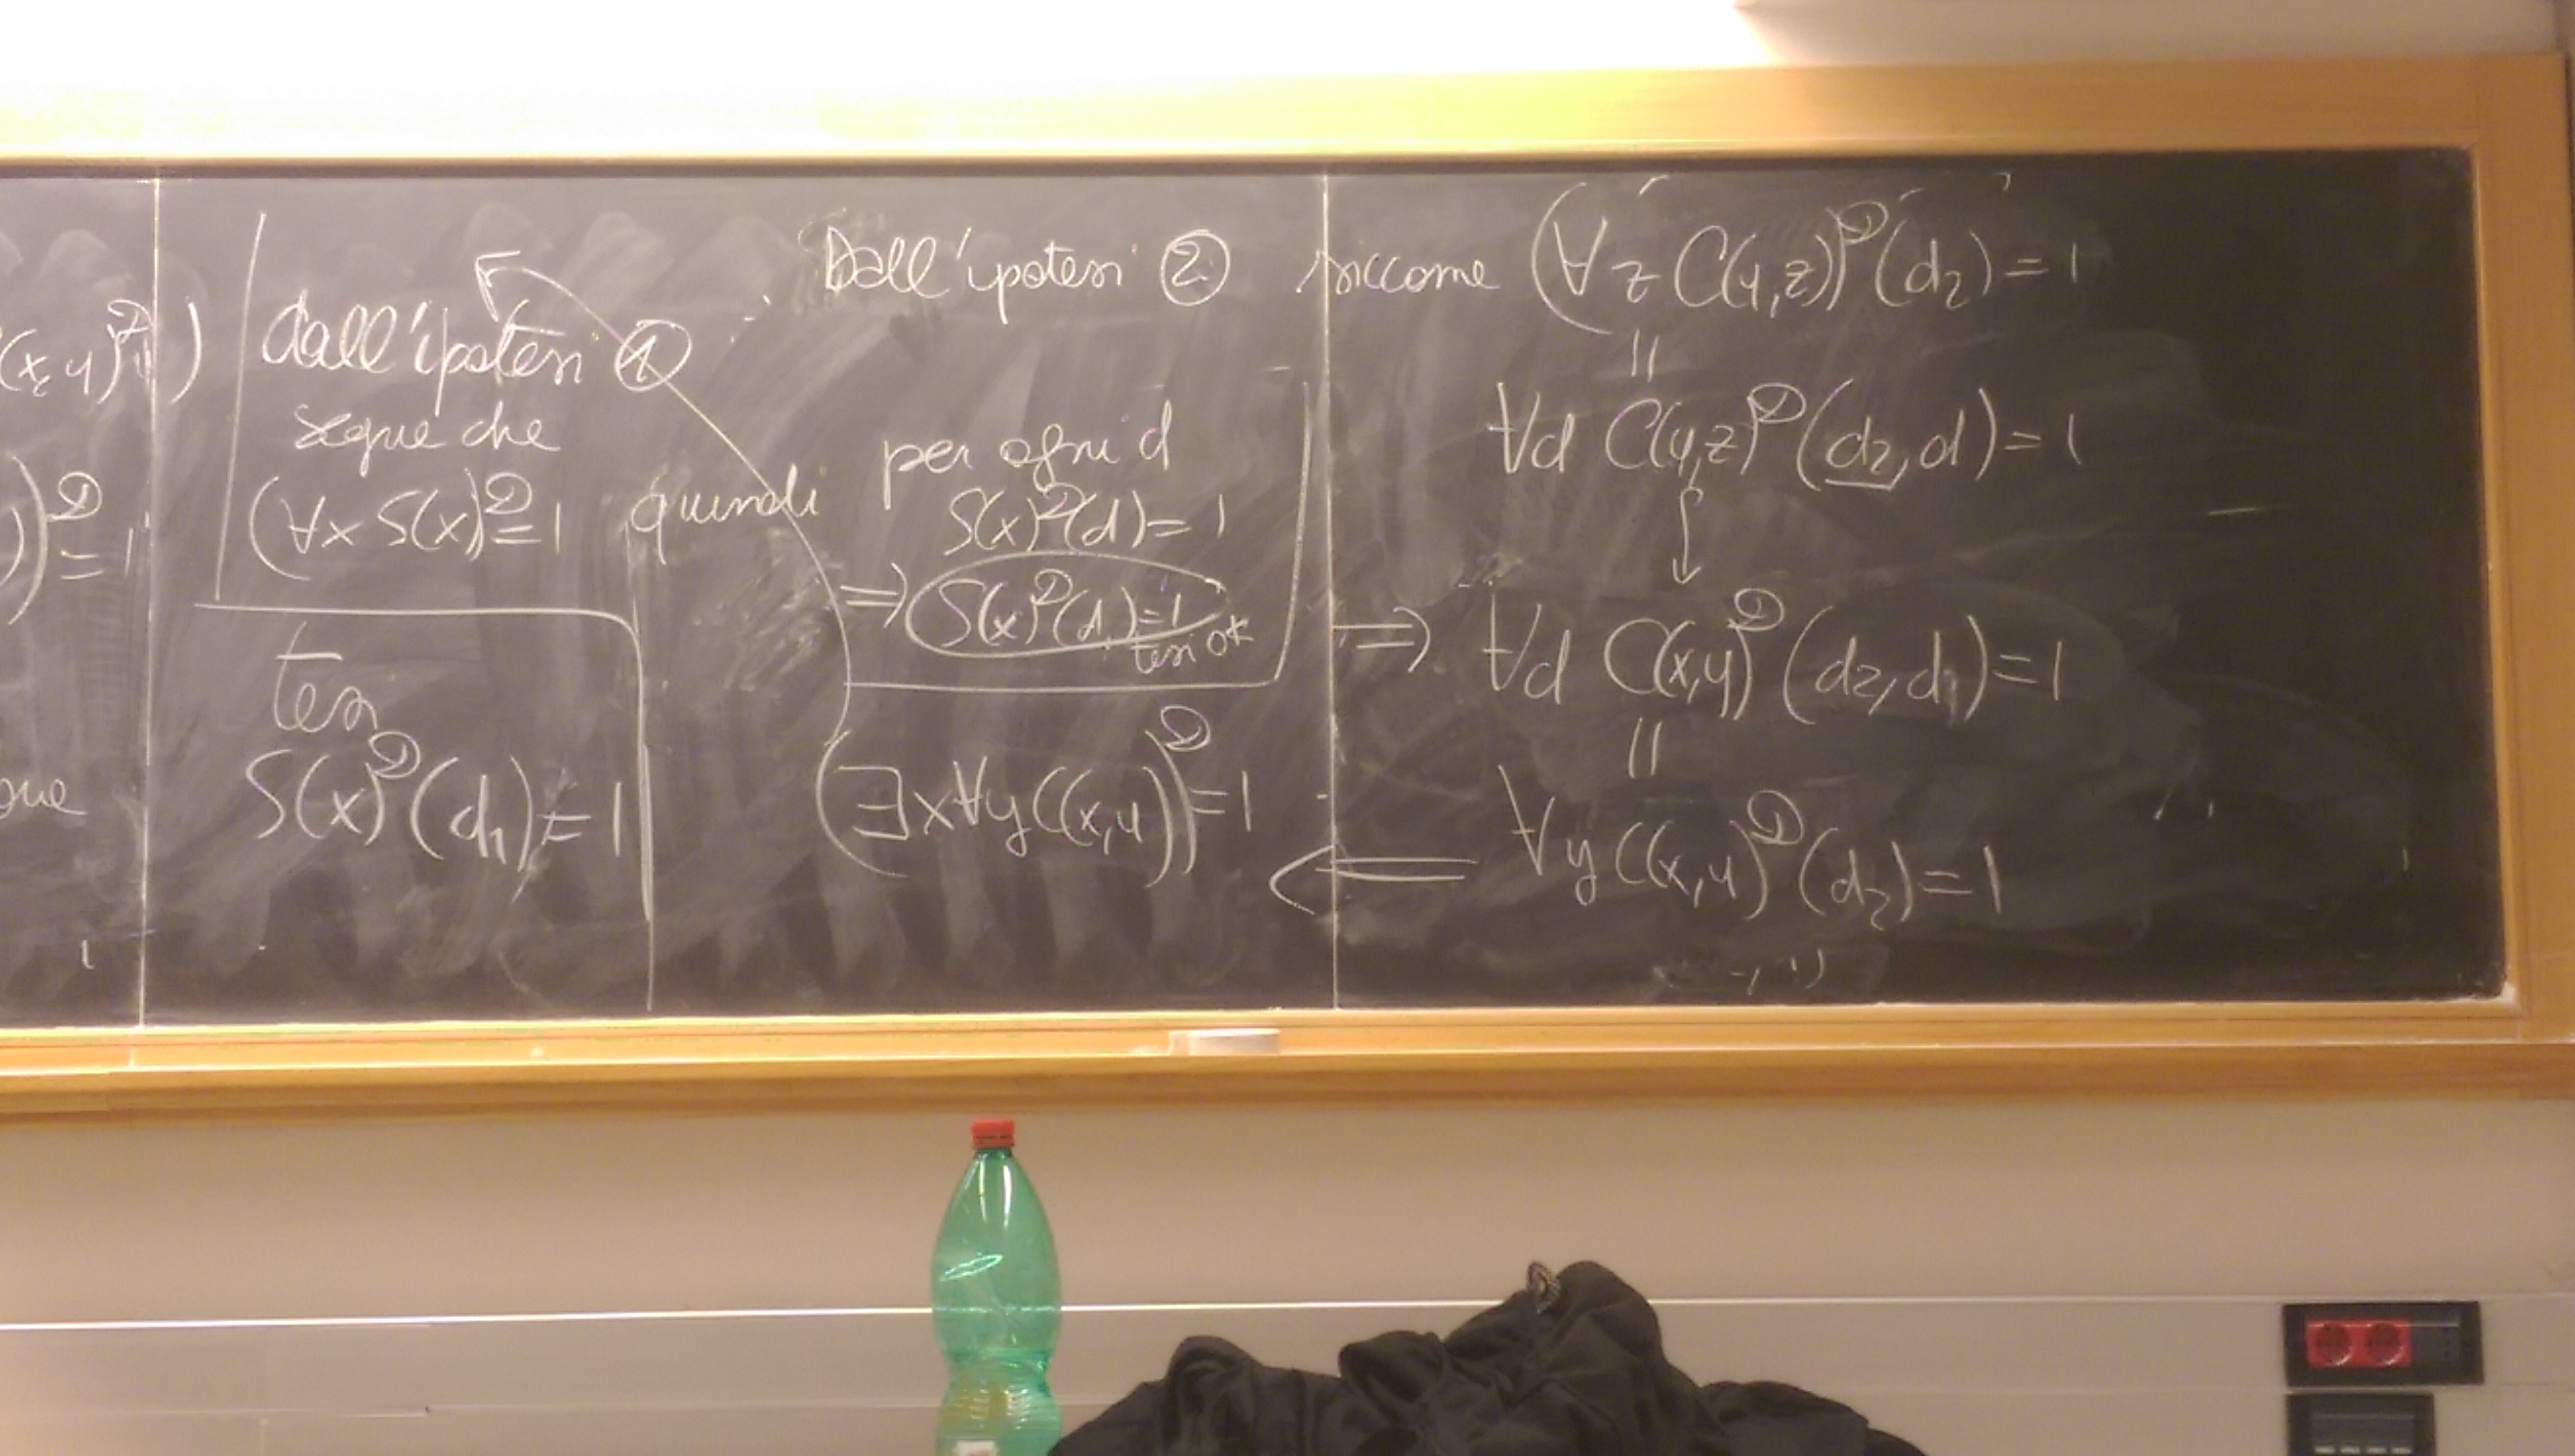 (x, y)ᴰ)
)ᴰ = 1
que
dall'ipotesi ①
segue che
(∀x S(x))ᴰ = 1
tesi
S(x)ᴰ(d₁) = 1
quindi
Dall'ipotesi ②
per ogni d
S(x)ᴰ(d) = 1
⇒ S(x)ᴰ(d₁) = 1
tesi ok
(∃x∀y C(x,y))ᴰ = 1
siccome (∀z C(y,z))ᴰ(d₂) = 1
||
∀d C(y,z)ᴰ(d₂,d) = 1
↓
⇒ ∀d C(x,y)ᴰ(d₂,d) = 1
||
⇐ ∀y C(x,y)ᴰ(d₂) = 1